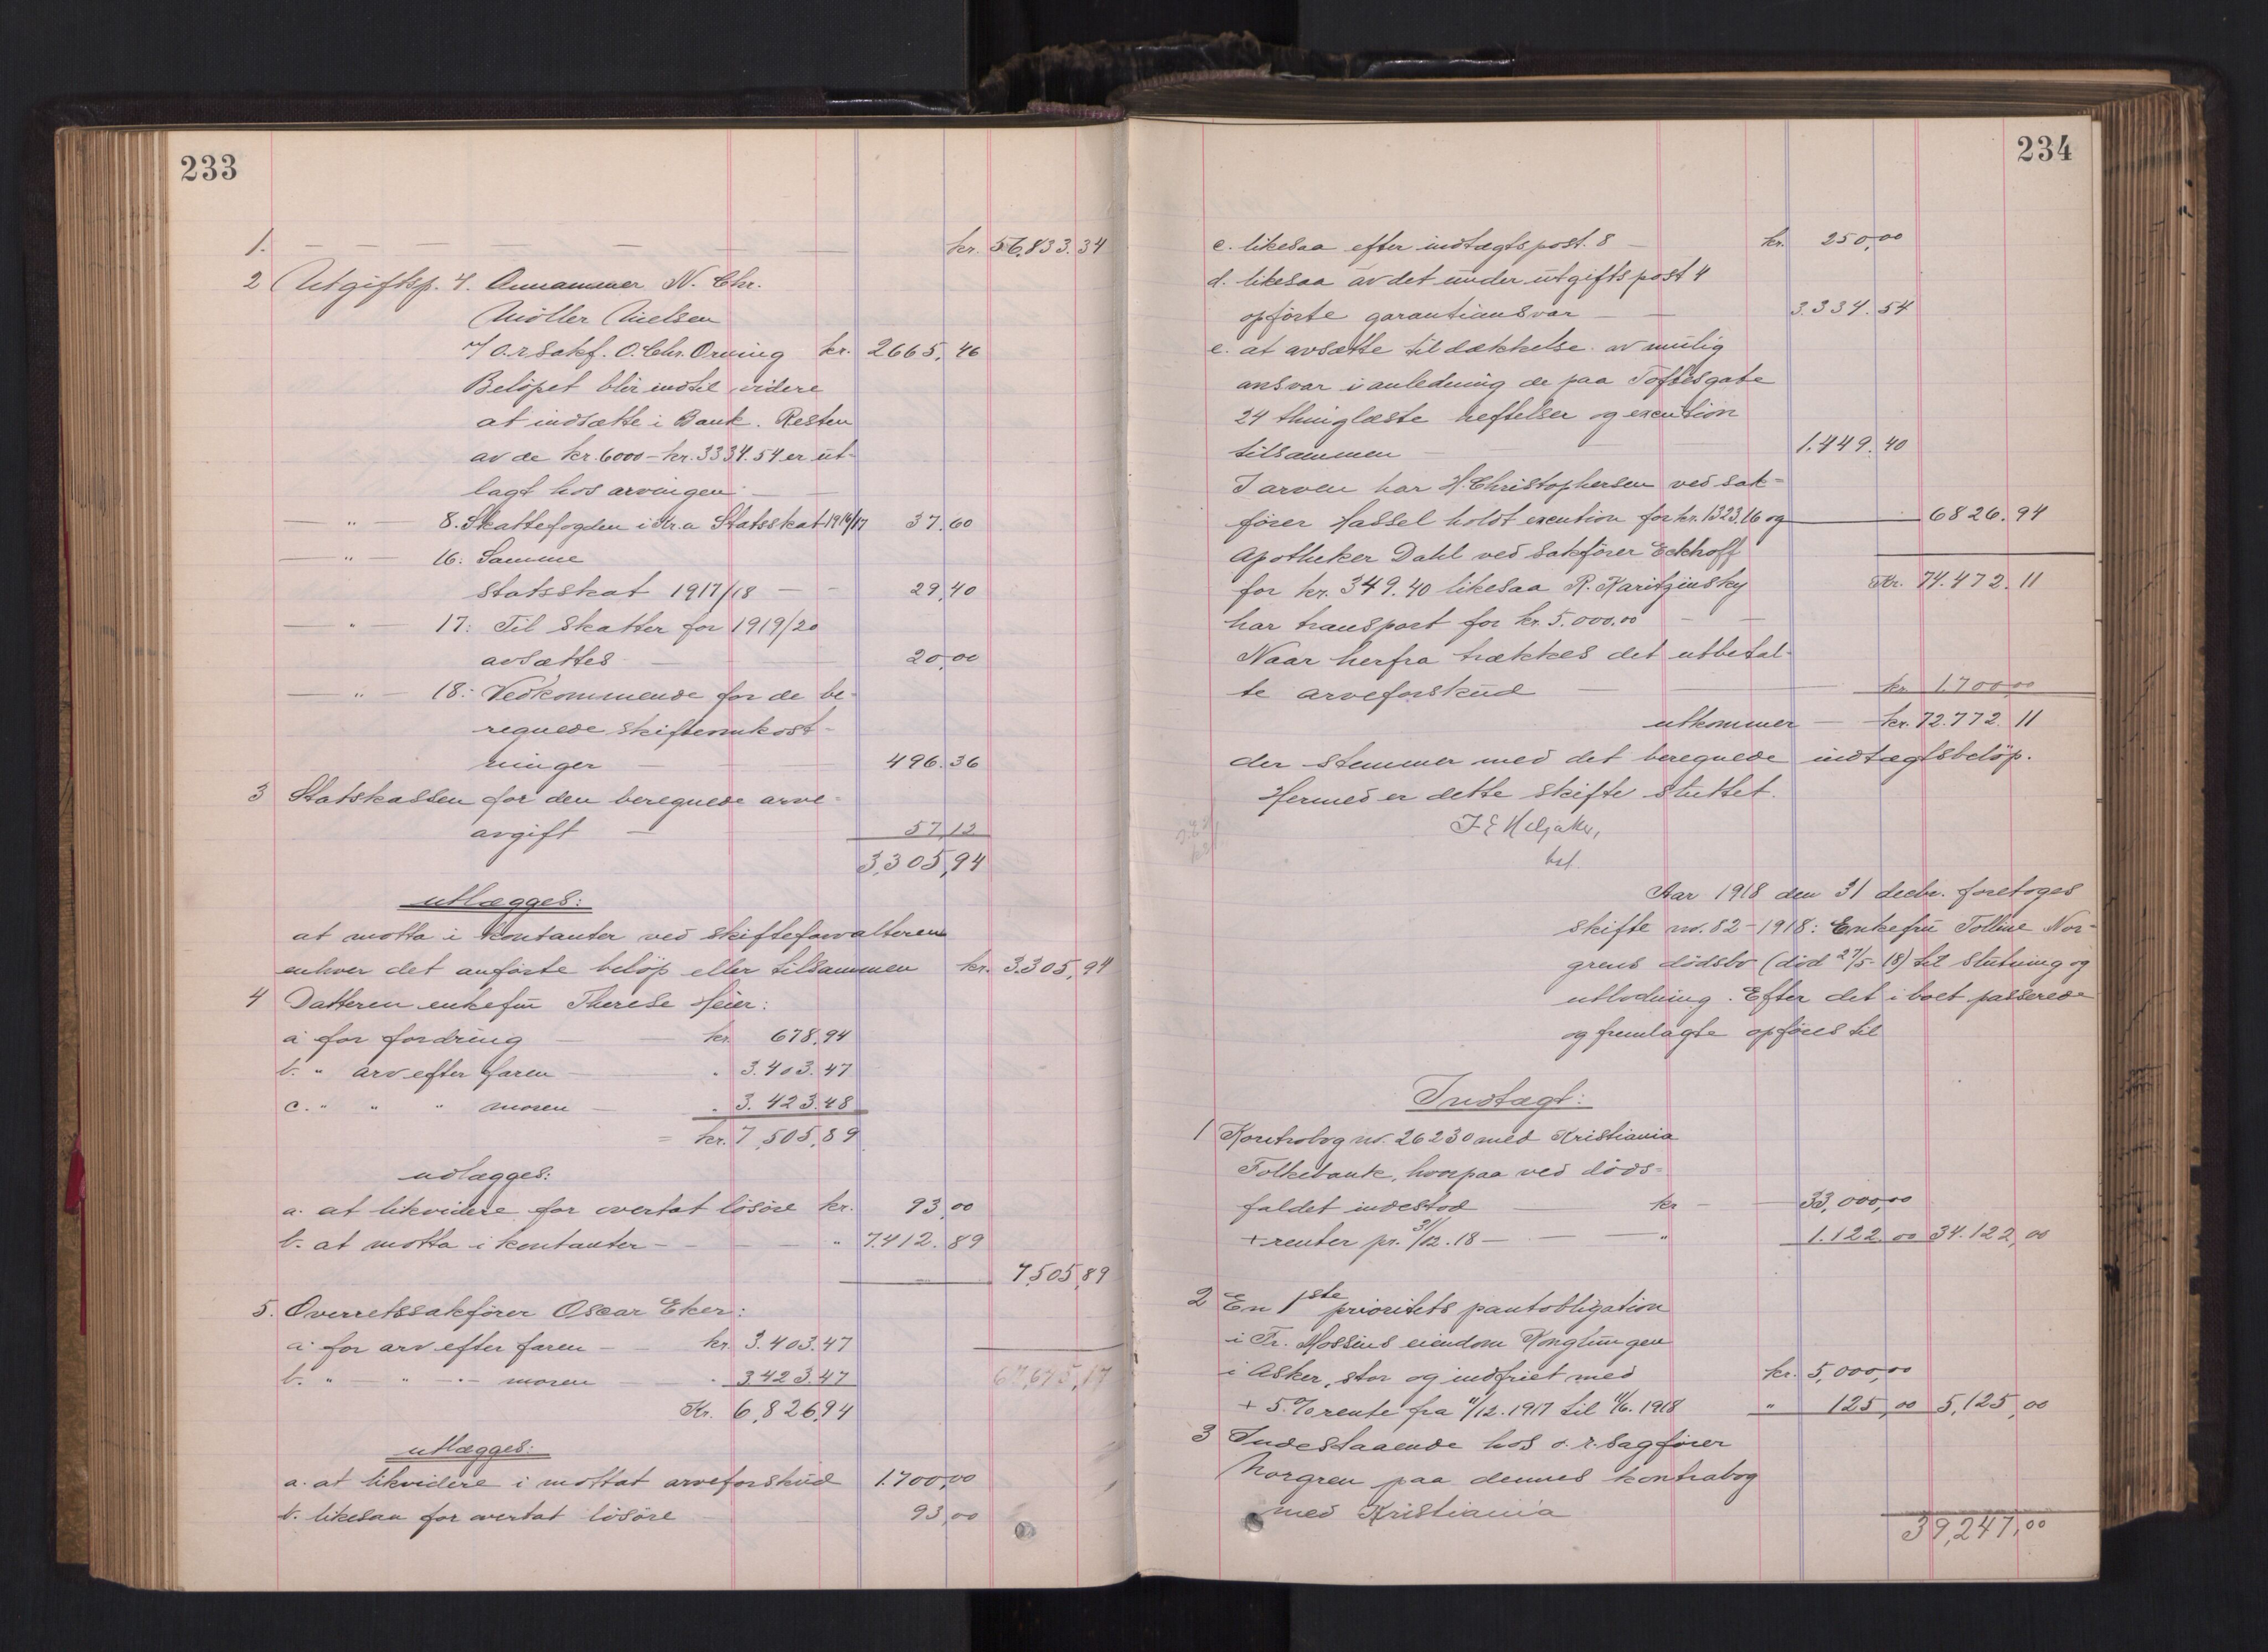 233
1. — — — — — — — kr. 56,833.34
2 Utgiftsp. 4. Annammer N. Chr.
Möller Nielsen
v/ o.r.sakf. O. Chr. Orning kr. 2665,46
Belöpet blir indtil videre
at indsætte i Bank. Resten
av de kr. 6000 - kr. 3334.54 er ut-
lagt hos arvingen — —
— " — 8. Skattefogden i Kr.a Statsskat 1916/17 37.60
— " — 16: Samme
statsskat 1917/18 — - 29,40
— " — 17: Til skatter for 1919/20
avsættes — 20,00
— " — 18: Vedkommende for de be-
regnede skifteomkost-
ninger — — 496.36
3 Statskassen for den beregnede arve-
avgift — 57,12
3,305,94
utlægges:
at motta i kontanter ved skifteforvalteren
enhver det anförte belöp eller tilsammen kr. 3.305,94
4 Datteren enkefru Therese Heier:
a for fordring — — kr. 678,94
b. " arv efter faren — " 3.403.47
c. " " " moren — " 3.423.48
= kr. 7,505,89
udlægges:
a. at likvidere for overtat lösöre kr. 93,00
b. at motta i kontanter — — — " 7.412.89
7,505,89
5. Overretssakförer Oscar Eker:
a. for arv efter faren — kr. 3.403.47
b. " — " — moren " 3.423.47
67,645,17
Kr. 6,826,94
utlægges:
a. at likvidere i mottat arveforskud 1.700,00
b. likesaa for overtat lösöre — 93,00
234
c. likesaa efter indtægtspost. 8 — kr. 250,00
d. likesaa av det under utgiftspost 4
opförte garantiansvar — — 3.334.54
e. at avsætte til dækkelse av mulig
ansvar i anledning de paa Toftesgate
24 thinglæste heftelser og execution
tilsammen 1.449.40
I arven har H. Christophersen ved sak-
förer Hassel holdt execution for kr. 1323.16 og — 6826.94
Apotheker Dahl ved sakförer Eckhoff
for kr. 349.40 likesaa R. Karitzinsky Kr. 74.472.11
har transport for kr. 5.000.00 — —
Naar herfra trækkes det utbetal-
te arveforskud — — kr. 1.700,00
utkommer — kr. 72.772.11
der stemmer med det beregnede indtægtsbelöp.
Hermed er dette skifte sluttet.
bef.
Aar 1918 den 31 decbr. foretoges
skifte no. 82 - 1918: Enkefru Tolline Nor-
grens dödsbo (död 27/5-18) til slutning og
utlodning. Efter det i boet passerede
og fremlagte opföres til
Indtægt:
1 Kontrabog no. 26230 med Kristiania
Folkebank, hvorpaa ved döds-
faldet indestod — kr — 33,000,00
+ renter pr. 31/12.18 — — — " 1.122.00 34.122,00
2 En 1ste prioritets pantobligation
i Fr. Mossins eiendom Konglungen
i Asker, stor og indfriet med kr. 5,000,00
+ 5.% rente fra 11/12.1917 til 11/6.1918 " 125,00 5,125,00
3 Indestaaende hos o.r.sagförer
Norgren paa dennes kontrabog
med Kristiania
39,247,00